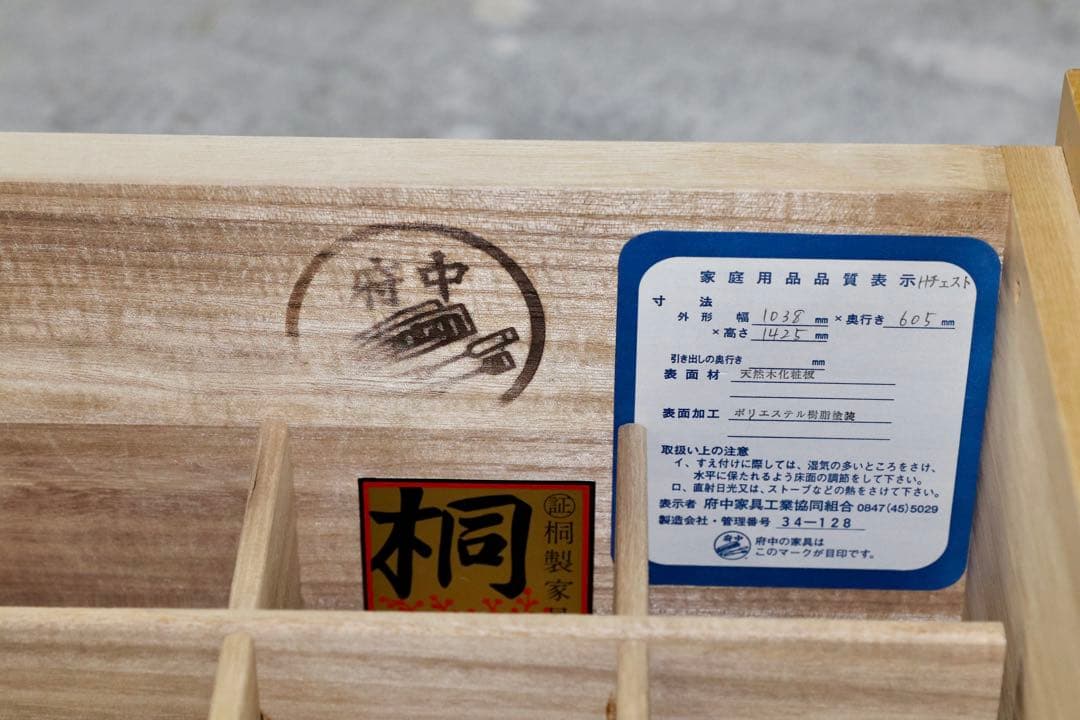 府中
家庭用品品質表示 Hチェスト
寸法
外形 幅 1038 mm × 奥行き 605 mm
× 高さ 1425 mm
引き出しの奥行き mm
表面材 天然木化粧板
表面加工 ポリエステル樹脂塗装
取扱い上の注意
イ、すえ付けに際しては、湿気の多いところをさけ、
水平に保たれるよう床面の調節をして下さい。
ロ、直射日光又は、ストーブなどの熱をさけて下さい。
表示者 府中家具工業協同組合 0847(45)5029
製造会社・管理番号 34-128
府中 府中の家具は
このマークが目印です。
桐
証 桐製家